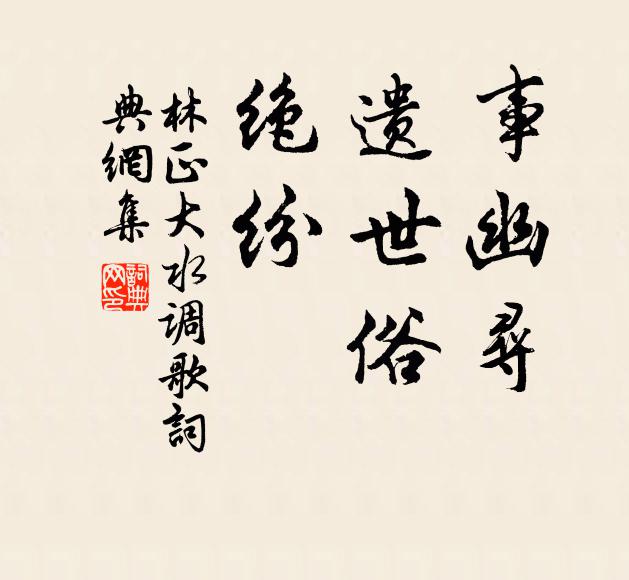 事幽尋
遗世俗
绝纷
林正大水调歌詞
典網集
詞典网印